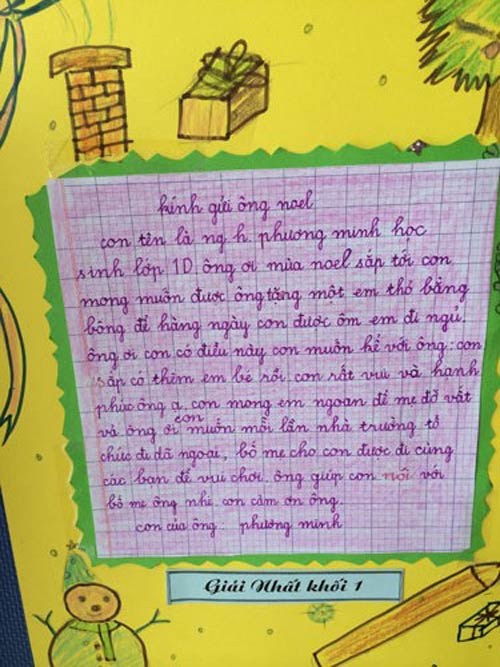 kính gửi ông noel
con tên là ng h. phương minh học
sinh lớp 1D. ông ơi mùa noel sắp tới con
mong muốn được ông tặng một em thỏ bằng
bông để hàng ngày con được ôm em đi ngủ.
ông ơi con có điều này con muốn kể với ông: con
sắp có thêm em bé rồi. con rất vui và hạnh
phúc ông ạ. con mong em ngoan để mẹ đỡ vất
và ông ơi con muốn mỗi lần nhà trường tổ
chức đi dã ngoại, bố mẹ cho con được đi cùng
các bạn để vui chơi. ông giúp con nói với
bố mẹ ông nhé. con cảm ơn ông.
con của ông: phương minh
Giải Nhất khối 1